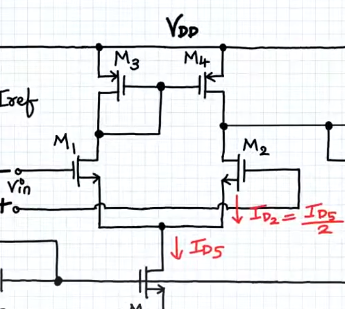 VDD
M3
M4
Iref
M1
M2
- Vin
+
ID2 = ID5/2
ID5
M